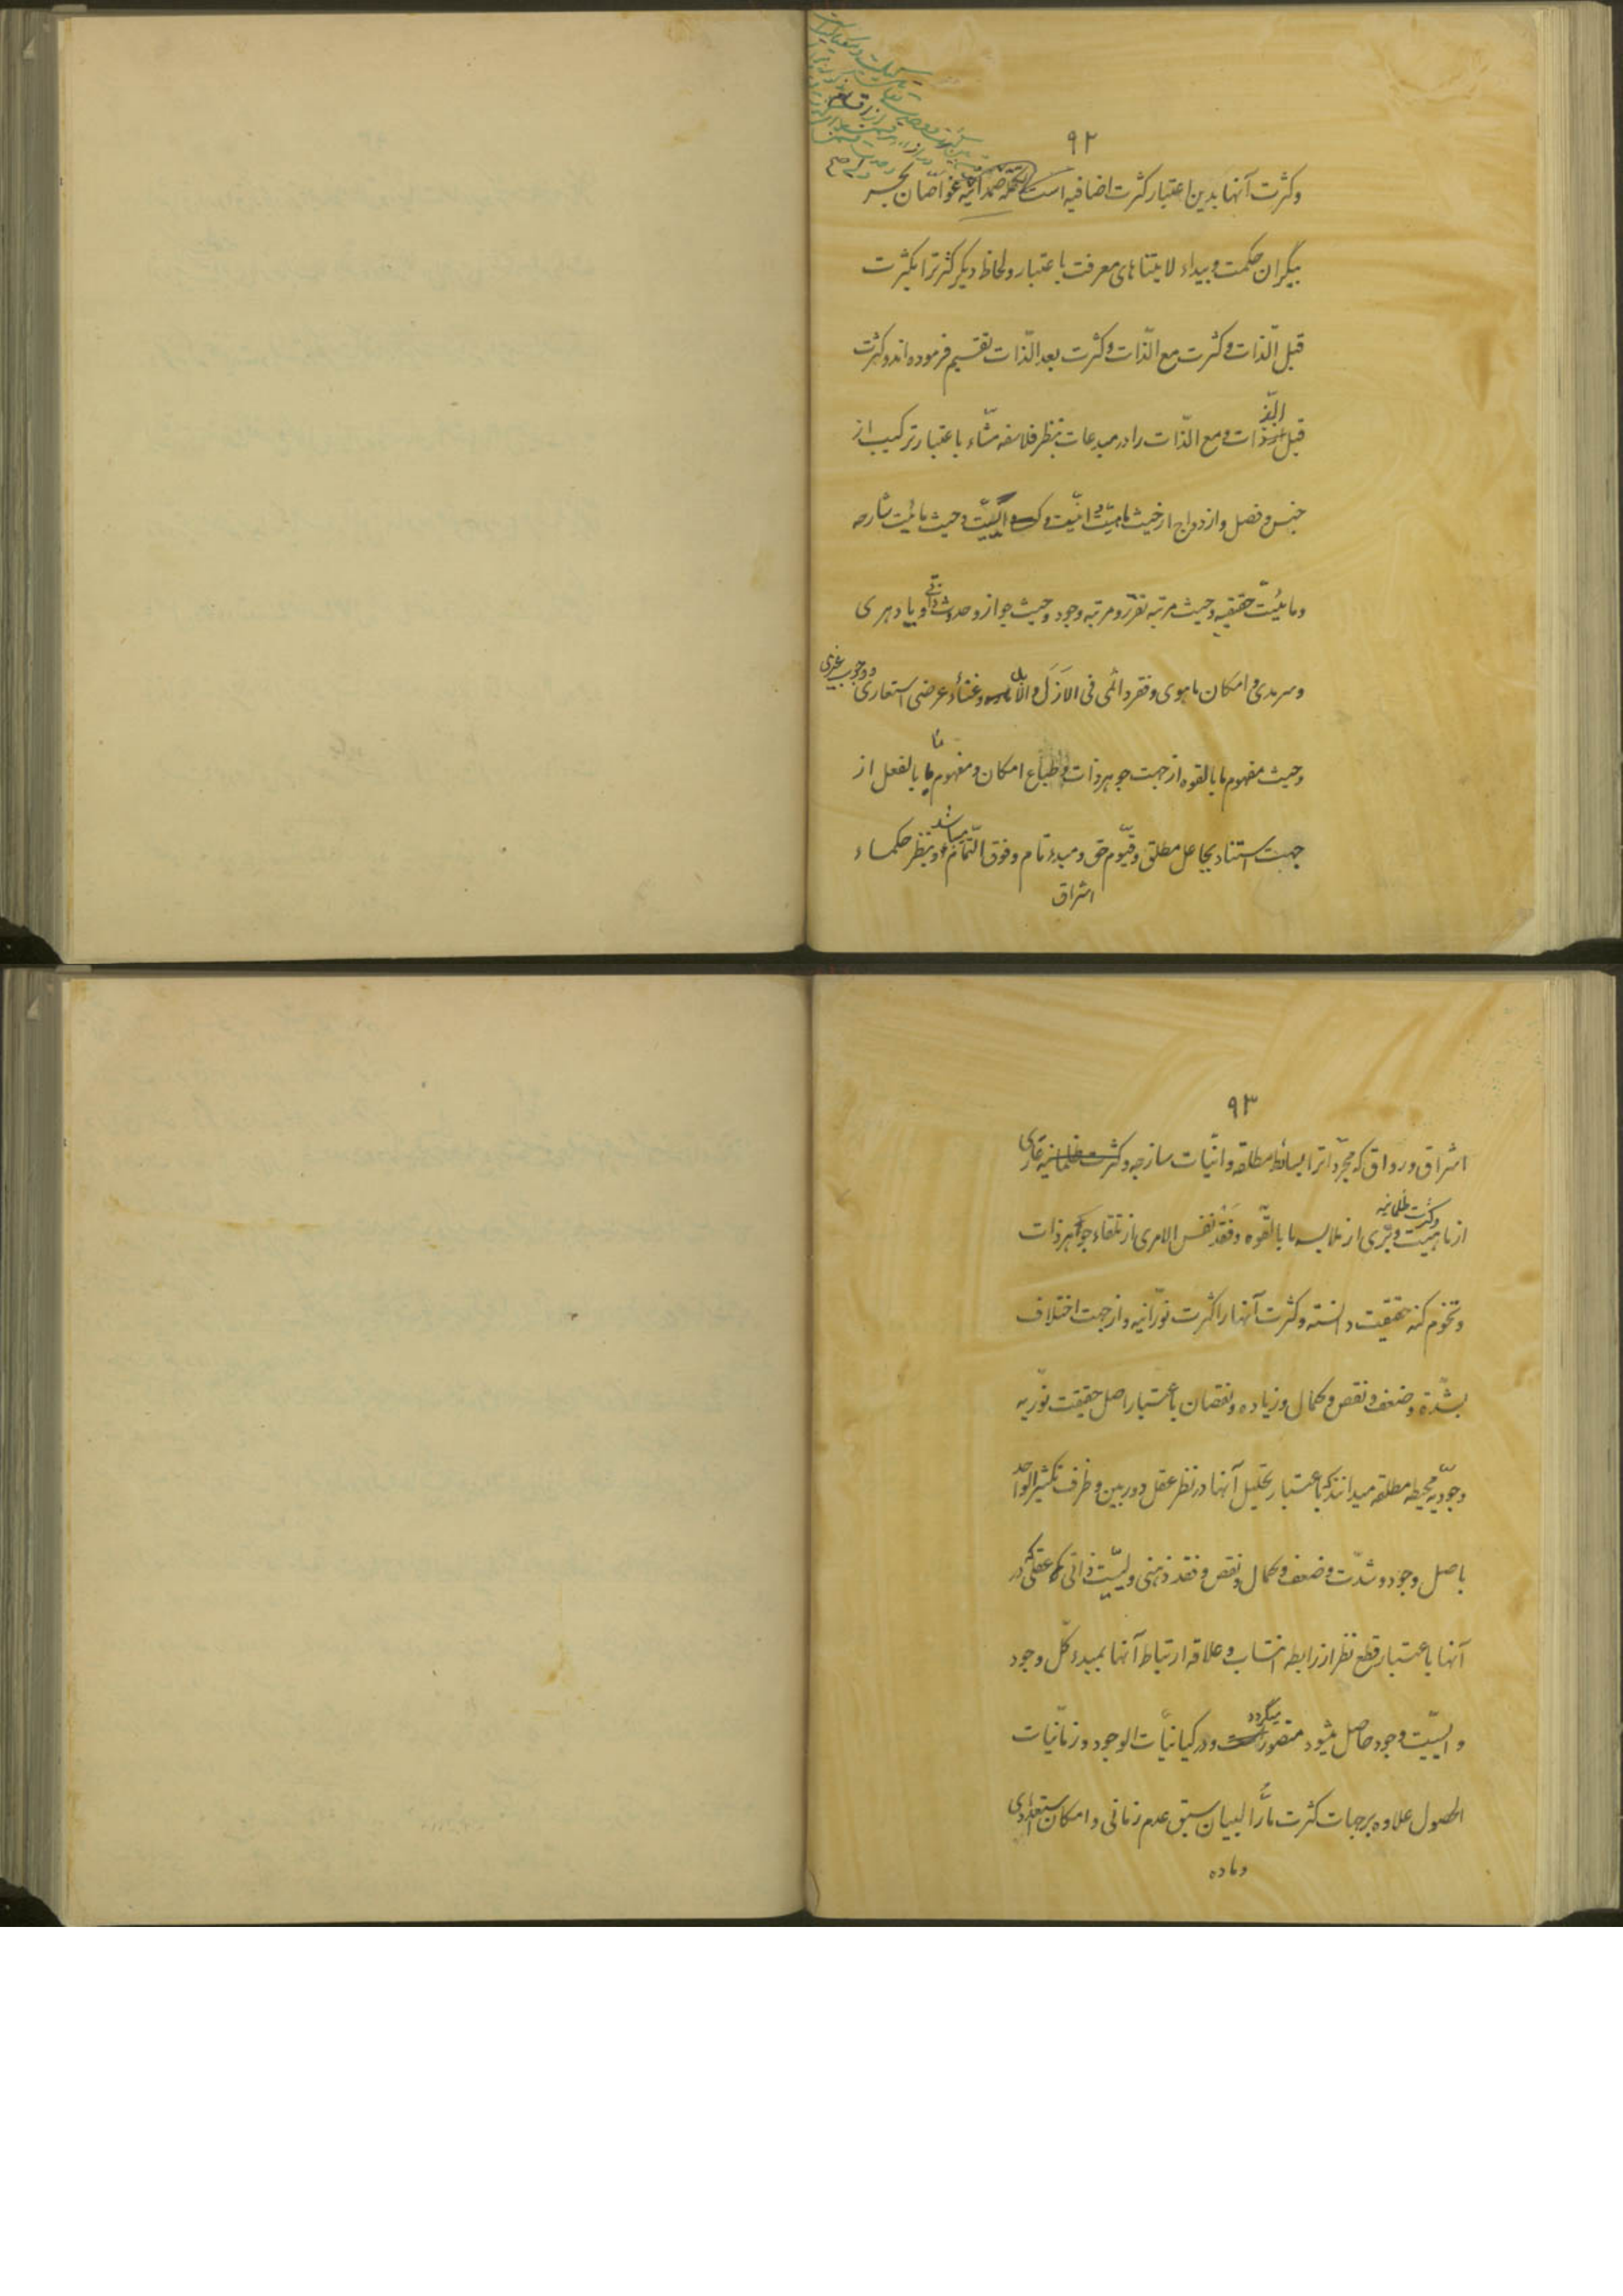 ۹۲
وکثرت آنها بدین اعتبار کثرت اضافیه است غواصان بحر
بیگران حکمت و بیداء لایتناهای معرفت با عتبار ولحاظ دیگر کثرترا بکثرت
قبل الذات و کثرت مع الذات وکثرت بعد الذات تقسیم فرموده اند وکثرت
قبل الذات ومع الذات را در مبدعات بنظر فلاسفه مشاء باعتبار ترکیب از
جنس وفصل وازدواج از حیث ماهیت و انیت و ایسیت وحیث مائیت شارحه
ومائیت حقیقیه وحیث مرتبه تقرر ومرتبه وجود وحیث جواز وحدوث ذاتی ویا دهری
وسرمدی و امکان ماهوی وفقر دائمی فی الازل و وغناء عرضی استعاری ووجوب غیری
وحیث مفهوم ما بالقوه از جهت جوهر ذات وطباع امکان ومفهوم ما بالفعل از
جهت استناد بجاعل مطلق وقیوم حق ومبدء تام وفوق التمام میباشد وبنظر حکماء
اشراق
۹۳
اشراق ورواق که مجرداترا بسائط مطلقه وانیات ساذجه وکثرت ظلمانیه عاری
از ماهیت وکثرت ظلمانیه وبری از ملابسه ما بالقوه وفقد نفس الامری از تلقاء جوهر ذات
وتخوم کنه حقیقت دانسته وکثرت آنها را کثرت نورانیه واز جهت اختلاف
بشدة وضعف ونقص وکمال وزیاده ونقصان باعتبار اصل حقیقت نوریه
وجودیه محیطه مطلقه میدانند که باعتبار تحلیل آنها در نظر عقل دوربین وظرف تکثیر الواحد
باصل وجود وشدت وضعف وکمال ونقص وفقد ذهنی ولیسیت ذاتی که عقلی در
آنها باعتبار قطع نظر از رابطه انتساب وعلاقه ارتباط آنها بمبدء کل وجود
و ایسیت وجود حاصل میشود متصور میگردد ودر کیانیات الوجود وزمانیات
الحصول علاوه بر جهات کثرت مار البیان سبق عدم زمانی وامکان استعدادی
وماده